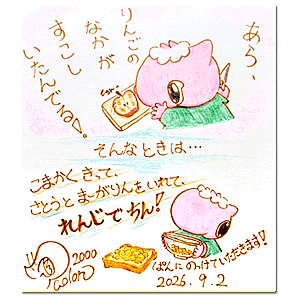 あら、
りんごの
なかが
すこし
いたんでる!
そんなときは…
こまかくきって、
さとうとまーがりんをいれて、
れんじでちん!
ぱんにのっけていただきます!
2000
colon
2026.9.2